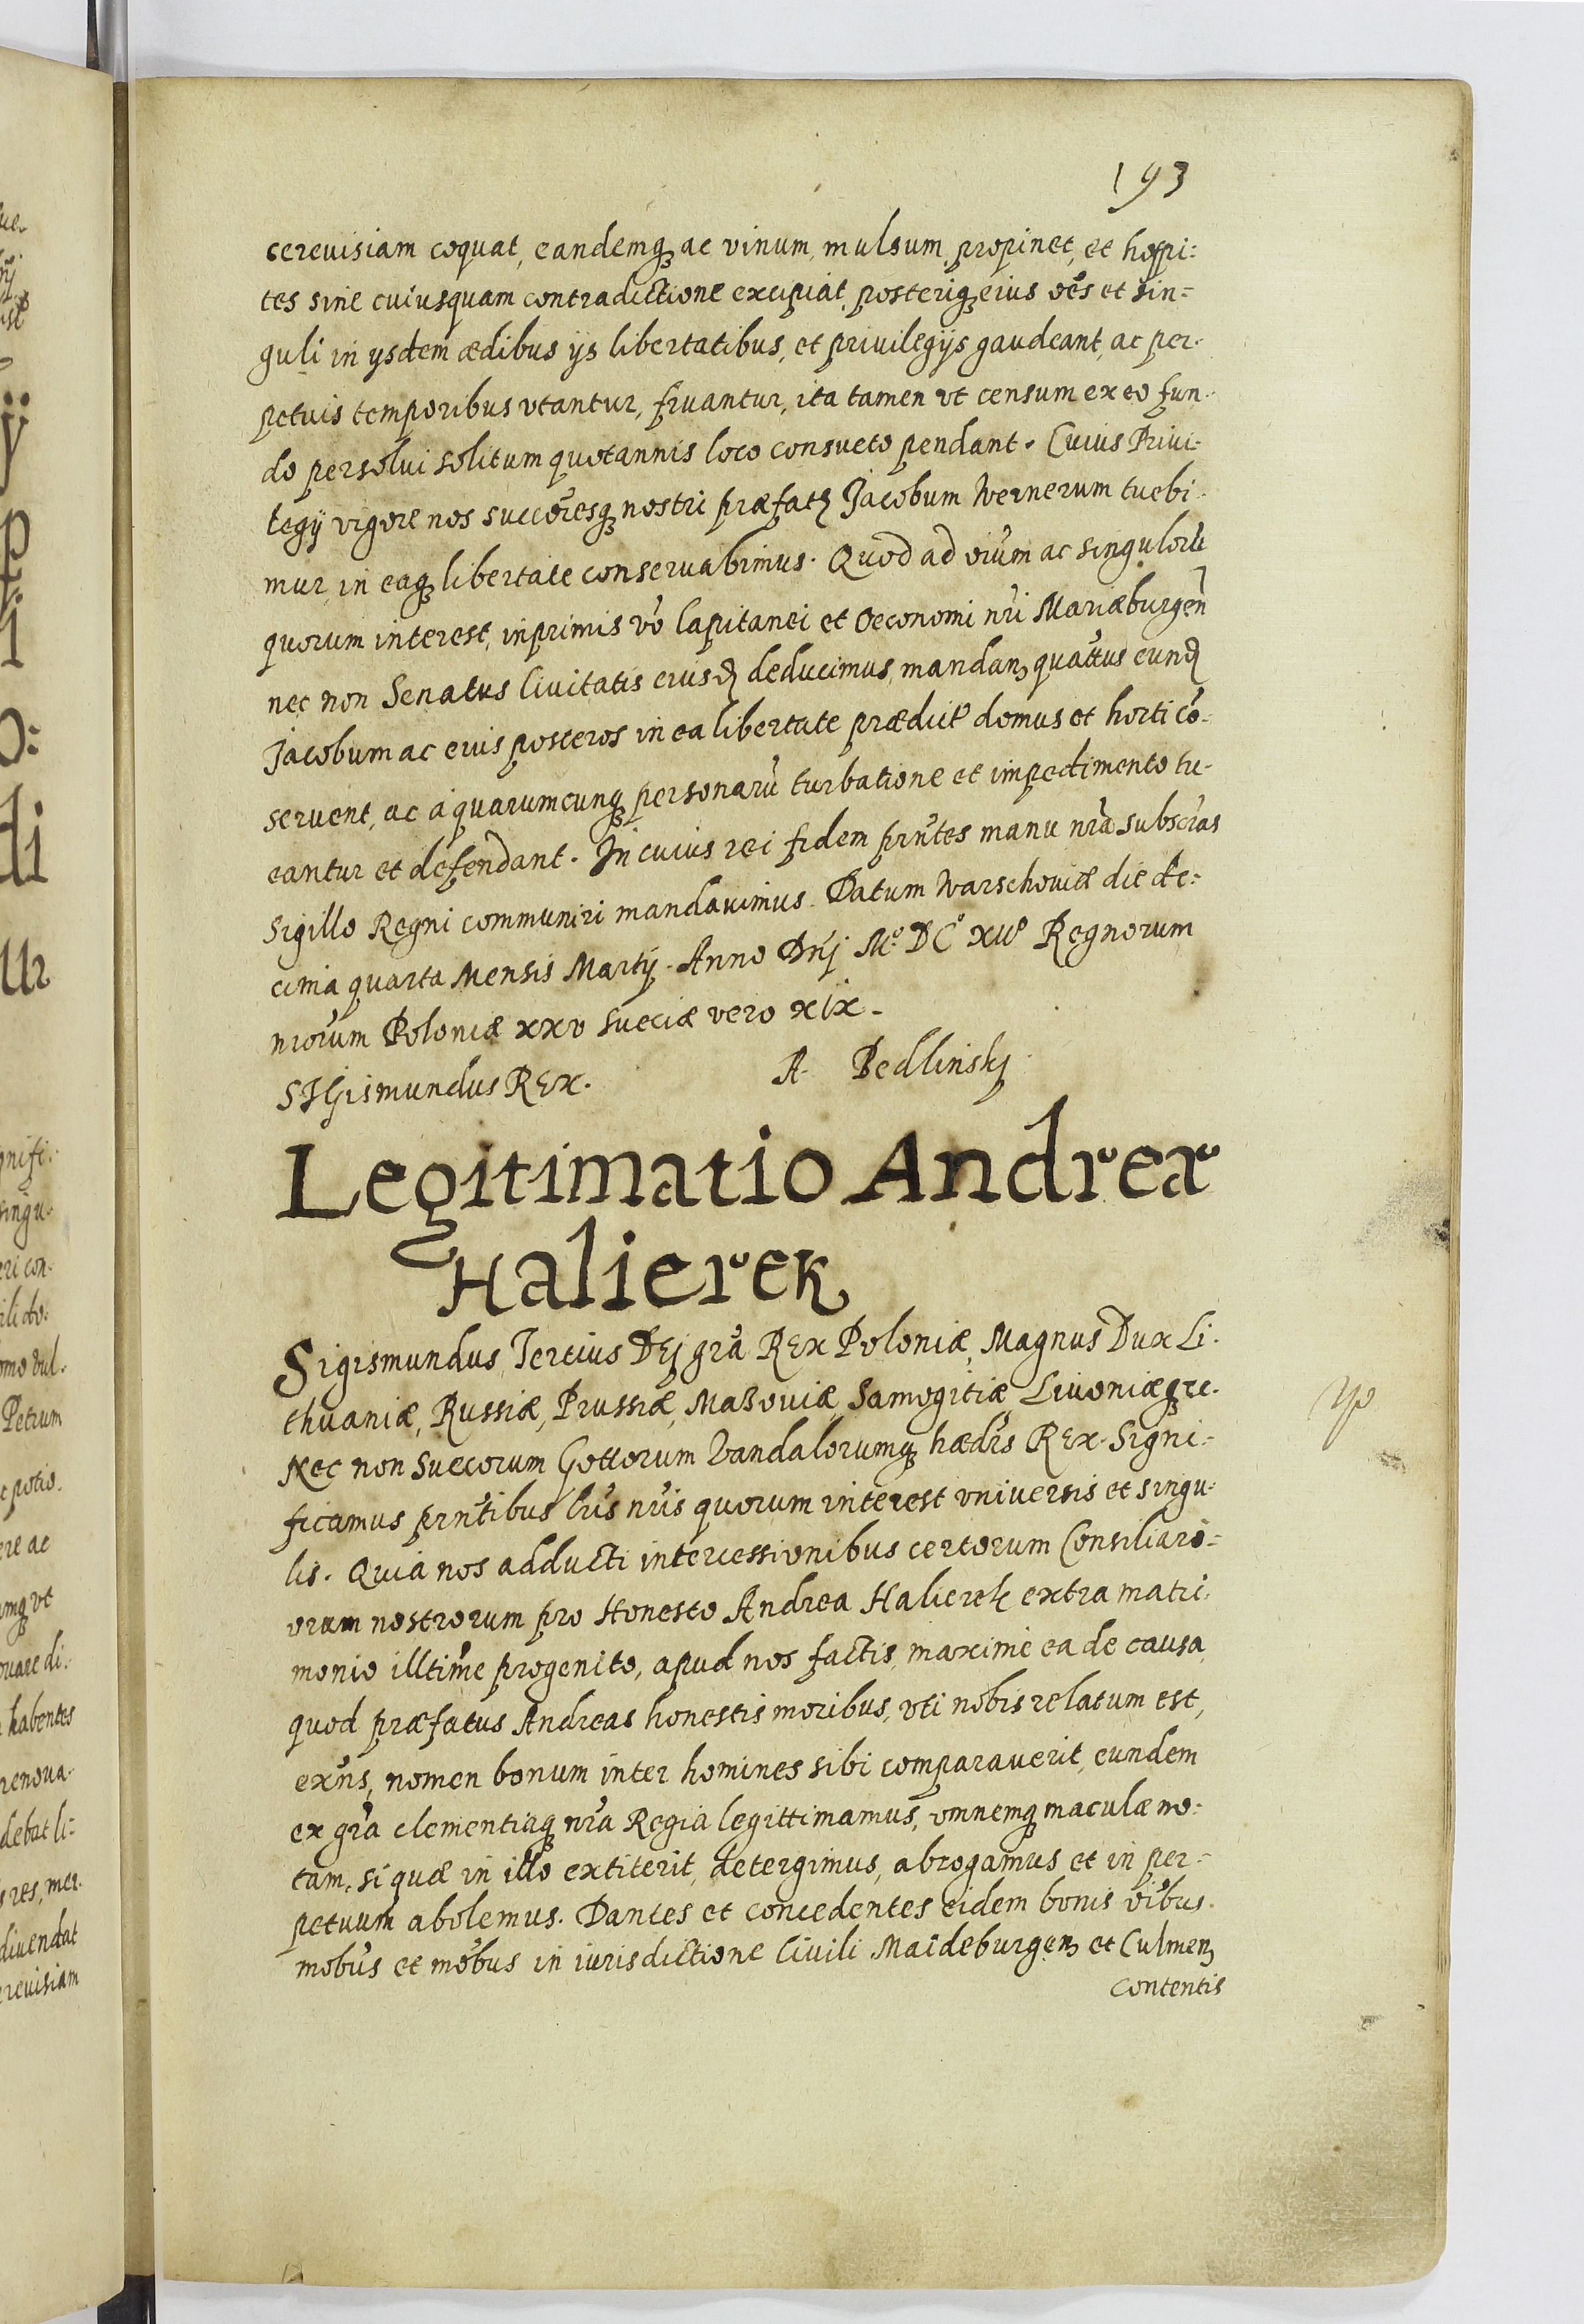 193
cerevisiam coquat, eandemq; ac vinum, mulsum propinet, et hospi:
tes sine cuiusquam contradictione excipiat, posteriq; eius oẽs et sin=
guli in ysdem ædibus ijs libertatibus, et privilegijs gaudeant, ac per-
petuis temporibus vtantur, fruantur, ita tamen vt censum ex eo fun-
do persolui solitum quotannis loco consueto pendant. Cuius Priui-
legij vigore nos succõresq; nostri præfatũ Jacobum Wernerum tuebi-
mur, in eaq; libertate conservabimus. Quod ad oiũm ac singulorũ
quorum interest, inprimis vẽ Capitanei et Oeconomi nri Mariæburgeñ
nec non Senatus Civitatis eiusd. deducimus, mandan; quattus eund.
Jacobum ac eius posteros in ea libertate prædict. domus et horti cõ-
servent, ac á quarumcunq; personarũ turbatione et impedimento tu-
eantur et defendant. In cuius rei fidem prñtes manu nrã subscrãs
Sigillo Regni communiri mandavimus. Datum Warschoviæ die de:
cima quarta Mensis Martij. Anno Dñj Mº DCº XIIº Regnorum
nrorum Poloniæ xxv Sueciæ vero xix-
SIGismundus REX.
A. Bedlinskj
Legitimatio Andreæ
Halierek
Sigismundus Tertius DEj grã REX Poloniæ, Magnus Dux Li-
thuaniæ, Russiæ, Prussiæ, Masoviæ, Samogitiæ Livoniæq; zc.
Nec non Suecorum Gottorum Vandalorumq; hædrs REX. Signi:
ficamus prñtibus lrĩs nrĩs quorum interest vniversis et singu-
lis. Quia nos adducti intercessionibus certorum Consiliarõ=
orum nostrorum pro Honesto Andrea Halierek extra matri-
monio illtime progenito, apud nos factis, maxime ea de causa,
quod præfatus Andreas honestis moribus, vti nobis relatum est,
exñs, nomen bonum inter homines sibi comparaverit, eundem
ex grã clementiaq; nrã Regia legittimamus, omnemq; maculæ no:
tam, si quæ in illo extiterit, detergimus, abrogamus et in per=
petuum abolemus. Dantes et concedentes eidem bonis oĩbus.
mobũs et mõbus in iurisdictione Civili Maideburgen; et Culmen;
contentis